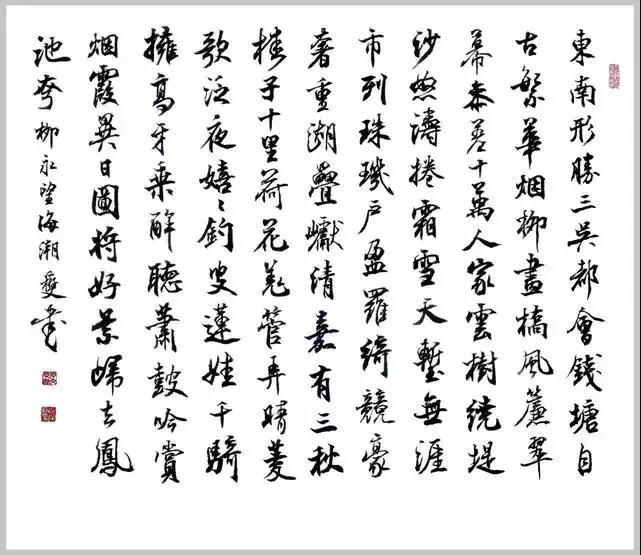 東南形勝三吳都會錢塘自
古繁華烟柳畫橋風簾翠
幕參差十萬人家雲樹繞堤
沙怒濤捲霜雪天塹無涯
市列珠璣戶盈羅綺競豪
奢重湖疊巘清嘉有三秋
桂子十里荷花羌管弄晴菱
歌泛夜嬉〻釣叟蓮娃千騎
擁高牙乘醉聽蕭鼓吟賞
烟霞異日圖將好景歸去鳳
池夸 柳永望海潮